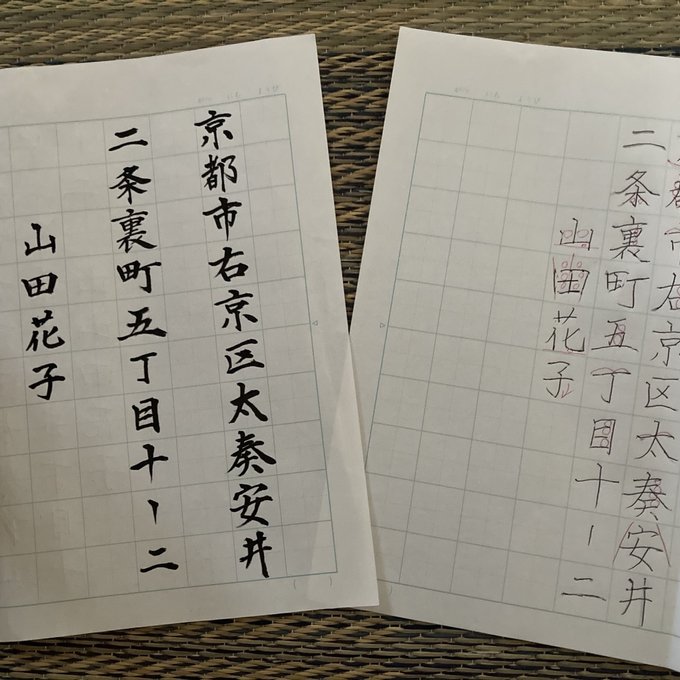 京都市右京区太奏安井
二条裏町五丁目十ー二
山田花子
都市右京区太奏安井
二条裏町五丁目十ー二
山田花子